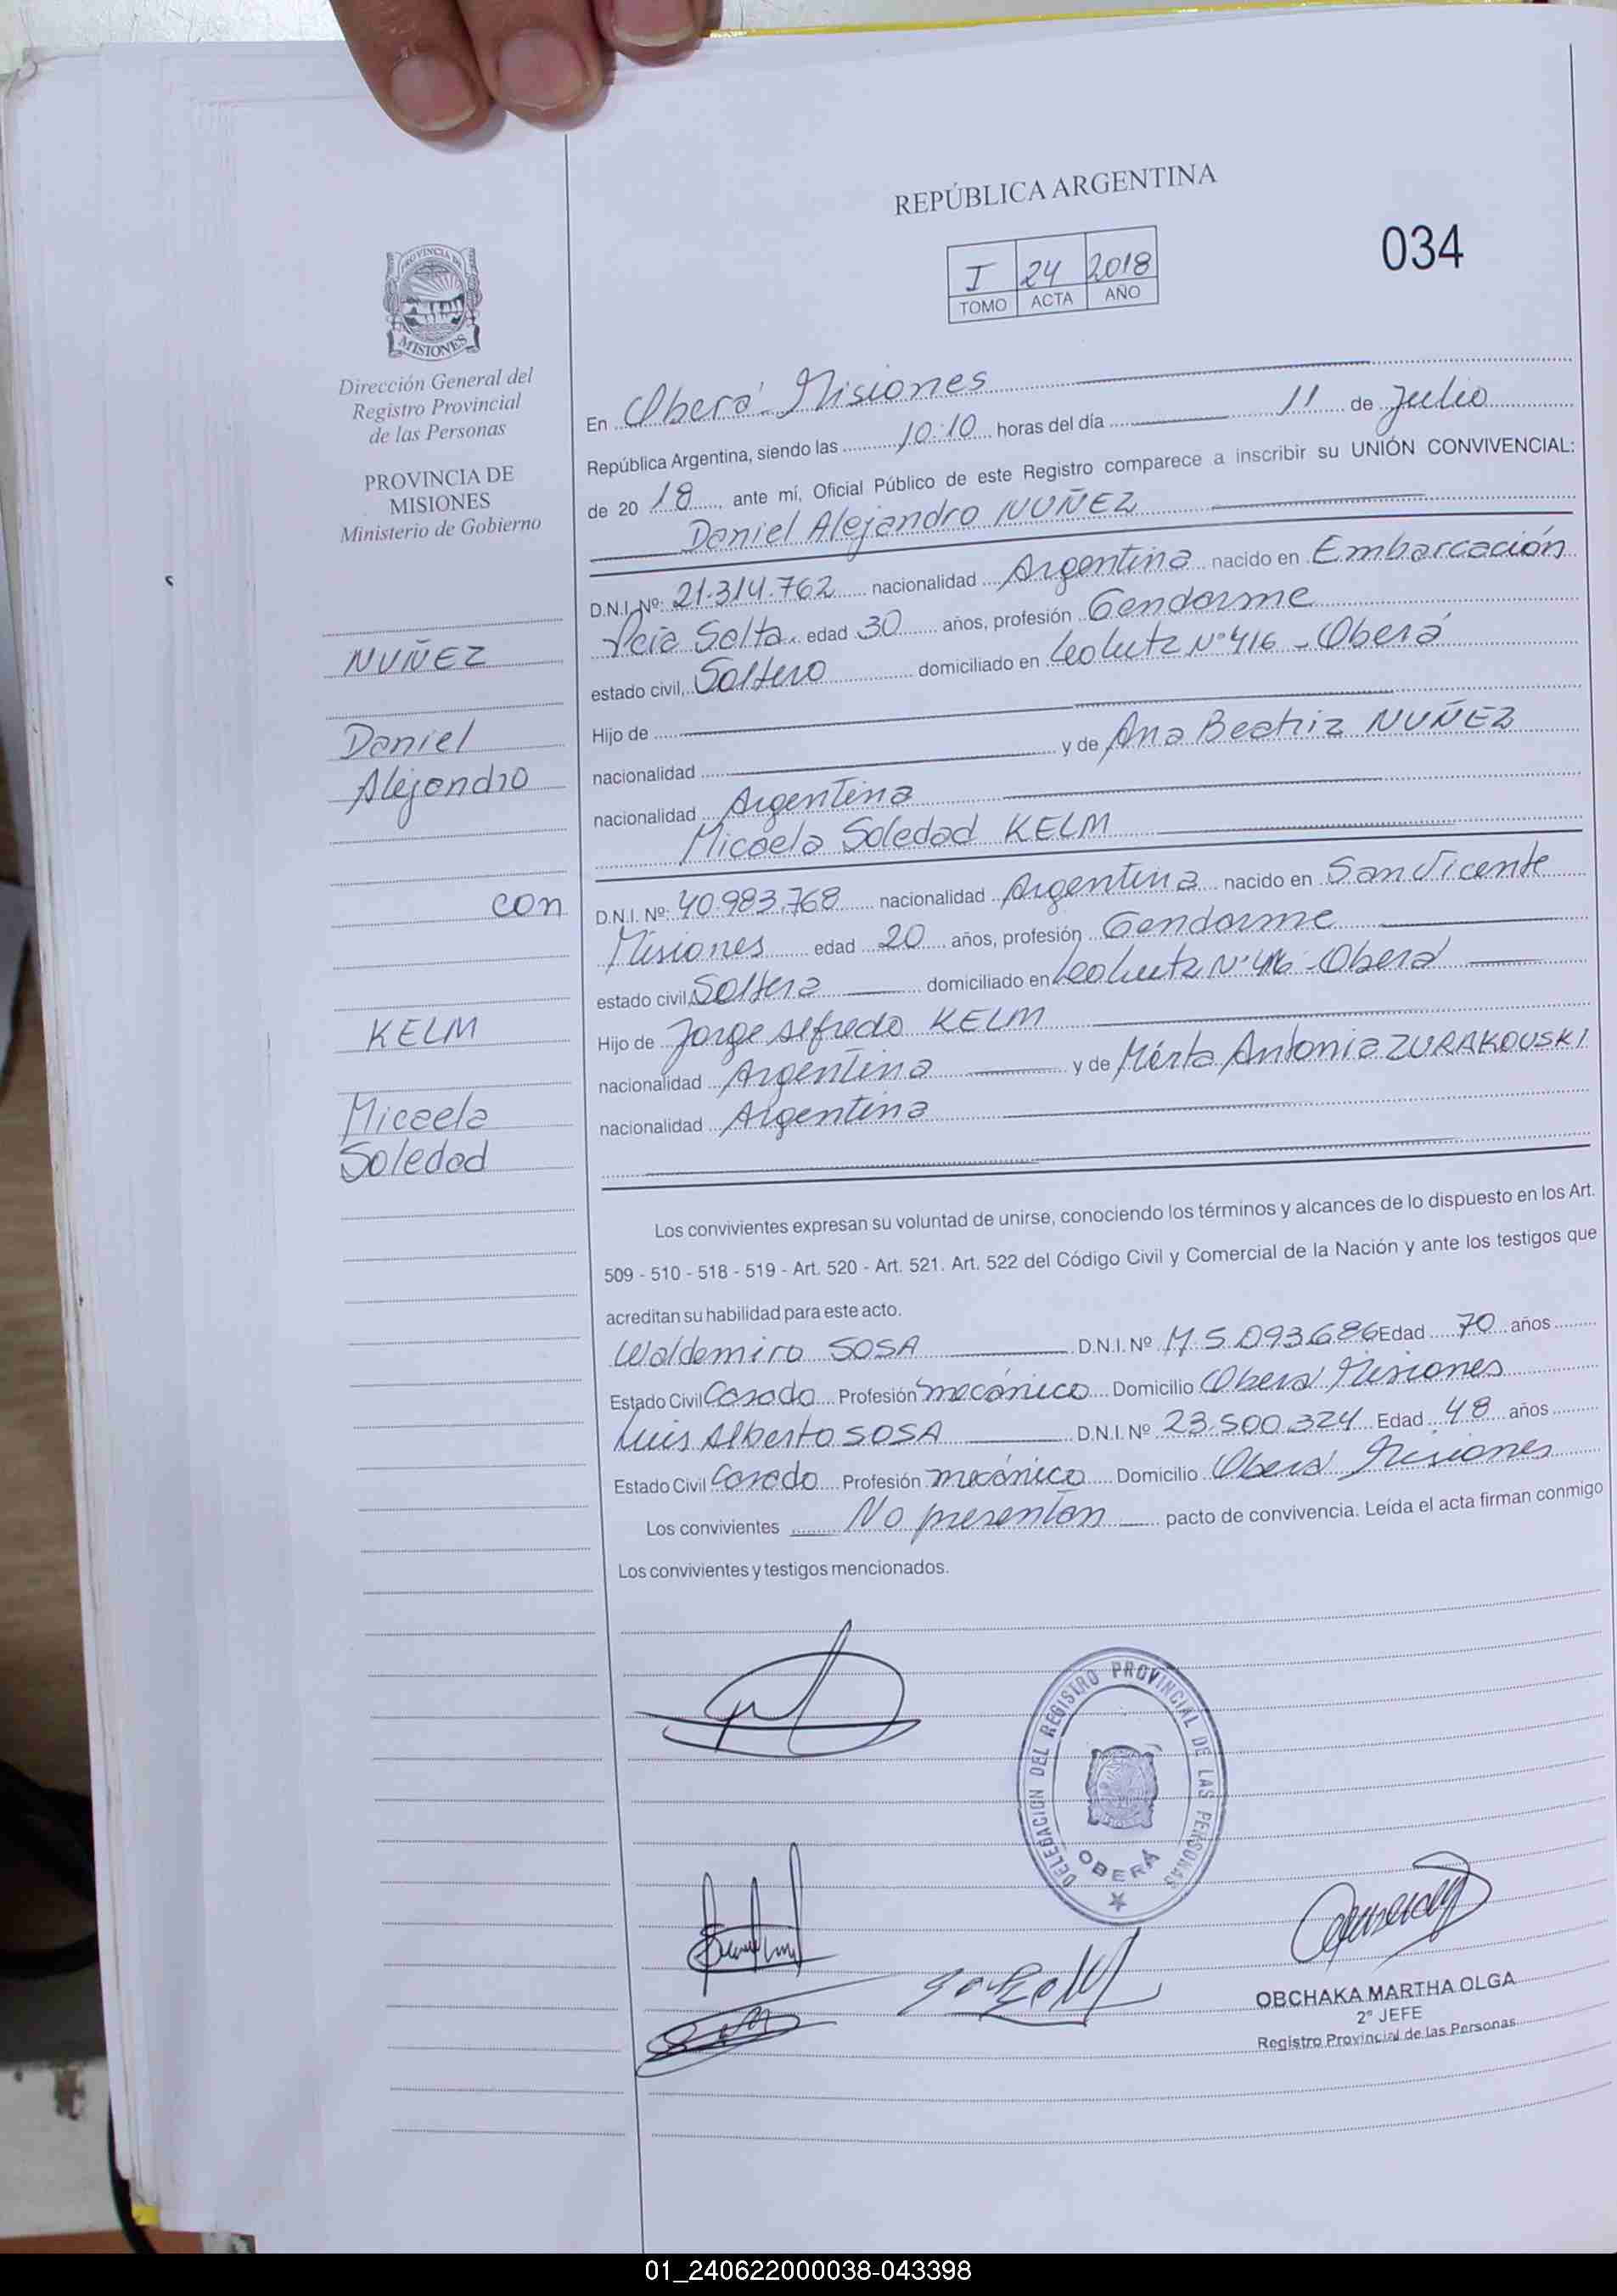 REPÚBLICA ARGENTINA
034
I 24 2018
TOMO ACTA AÑO
PROVINCIA DE
MISIONES
Dirección General del
Registro Provincial
de las Personas
PROVINCIA DE
MISIONES
Ministerio de Gobierno
NUÑEZ
Daniel
Alejandro
con
KELM
Micaela
Soledad
En Oberá Misiones
República Argentina, siendo las 10:10 horas del día 11 de Julio
de 20 18, ante mí, Oficial Público de este Registro comparece a inscribir su UNIÓN CONVIVENCIAL:
Daniel Alejandro NUÑEZ
D.N.I. Nº: 21.314.762 nacionalidad Argentina nacido en Embarcación
Pcia Salta. edad 30 años, profesión Gendarme
estado civil, Soltero domiciliado en Leo Lutz Nº 416 - Oberá
Hijo de
nacionalidad y de Ana Beatriz NUÑEZ
nacionalidad Argentina
Micaela Soledad KELM
D.N.I. Nº: 40.983.768 nacionalidad Argentina nacido en San Vicente
Misiones edad 20 años, profesión Gendarme
estado civil, Soltera domiciliado en Leo Lutz Nº 416 - Oberá
Hijo de Jorge Alfredo KELM
nacionalidad Argentina y de Mirta Antonia ZURAKOUSKI
nacionalidad Argentina
Los convivientes expresan su voluntad de unirse, conociendo los términos y alcances de lo dispuesto en los Art.
509 - 510 - 518 - 519 - Art. 520 - Art. 521. Art. 522 del Código Civil y Comercial de la Nación y ante los testigos que
acreditan su habilidad para este acto.
Waldemiro SOSA D.N.I. Nº M 5.093.686 Edad 70 años
Estado Civil Casado Profesión mecánico Domicilio Oberá Misiones
Luis Alberto SOSA D.N.I. Nº 23.500.324 Edad 48 años
Estado Civil Casado Profesión mecánico Domicilio Oberá Misiones
Los convivientes No presentan pacto de convivencia. Leída el acta firman conmigo
Los convivientes y testigos mencionados.
DELEGACION DEL REGISTRO PROVINCIAL DE LAS PERSONAS
OBERÁ
OBCHAKA MARTHA OLGA
2º JEFE
Registro Provincial de las Personas
01_240622000038-043398